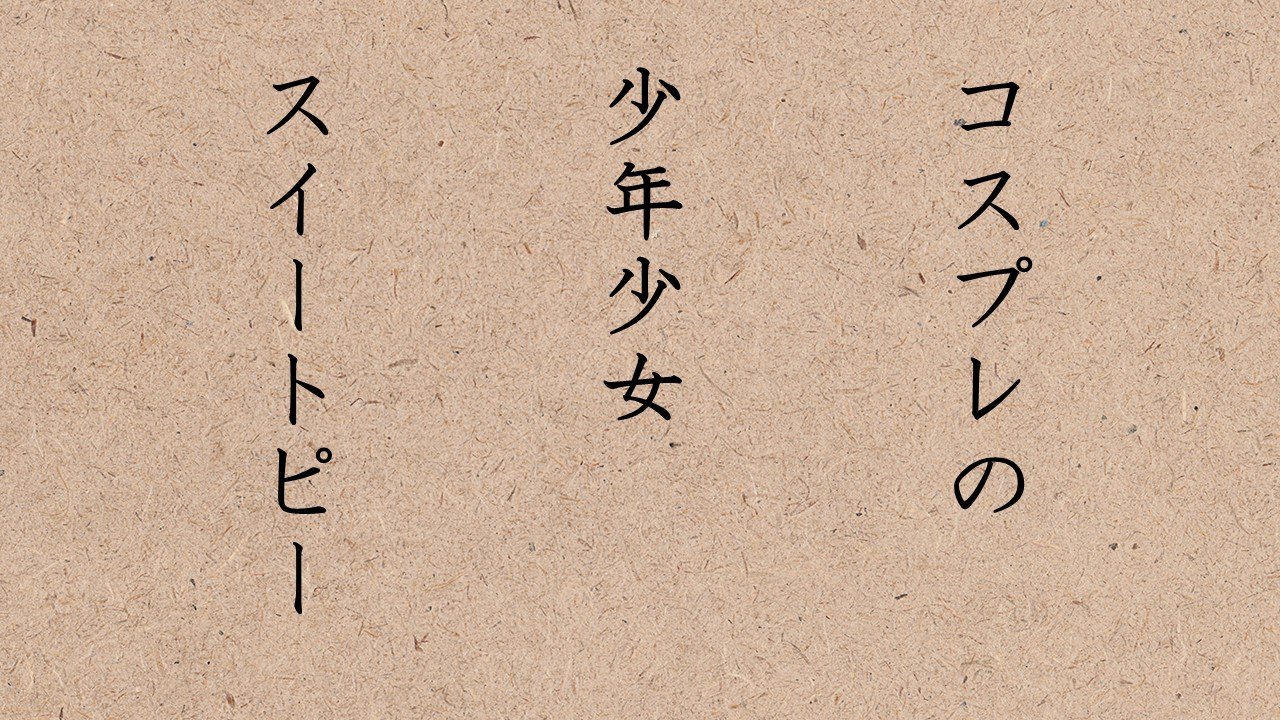 コスプレの
少年少女
スイートピー